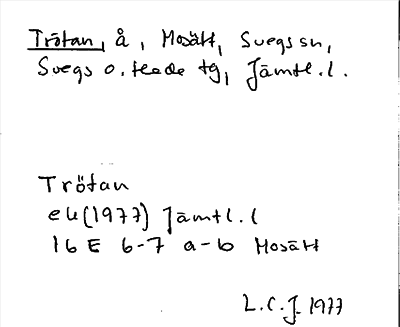 Trötan, å, Mosätt, Svegs sn,
Svegs o. Hede tg, Jämtl. l.
Trötan
ek (1977) Jämtl. l
16 E 6-7 a-b Mosätt
L.C.J. 1977